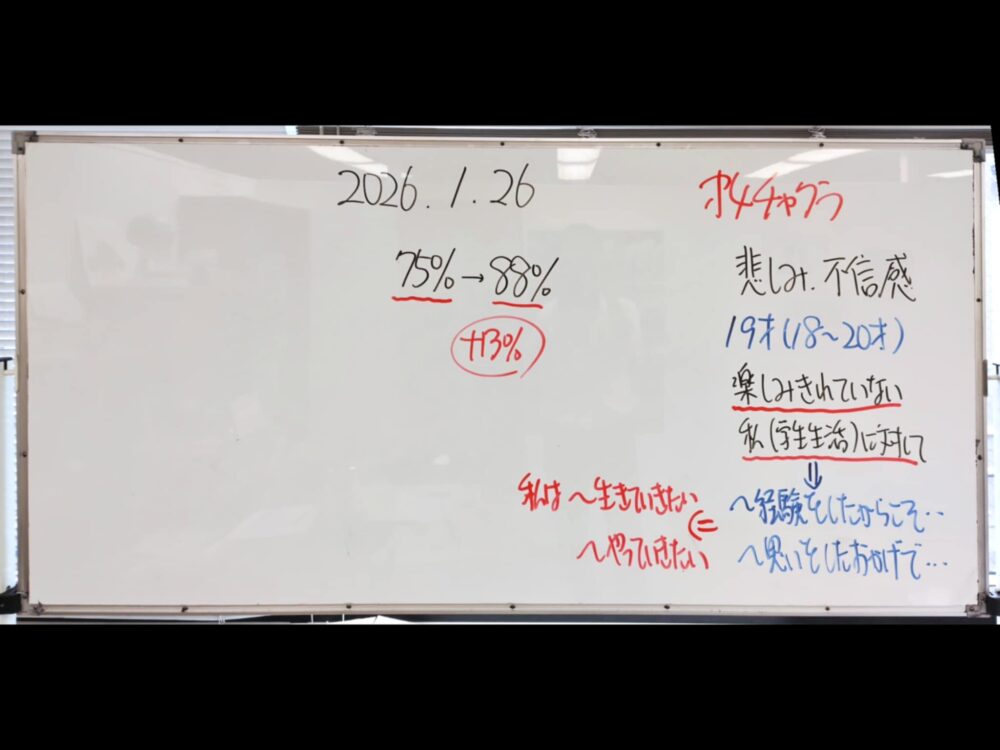 2026.1.26
75%→88%
+13%
第4チャクラ
悲しみ.不信感
19才(18～20才)
楽しみきれていない
私(学生生活)に対して
⇓
～経験をしたからこそ‥
～思いをしたおかげで…
⇐
私は～生きていきたい
～やっていきたい